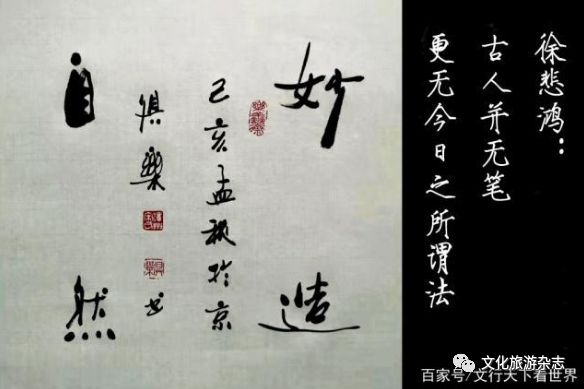 妙造
自然
己亥孟秋於京
俱樂
书
徐悲鸿：
古人并无笔
更无今日之所谓法
文化旅游杂志
百家号/文行天下看世界